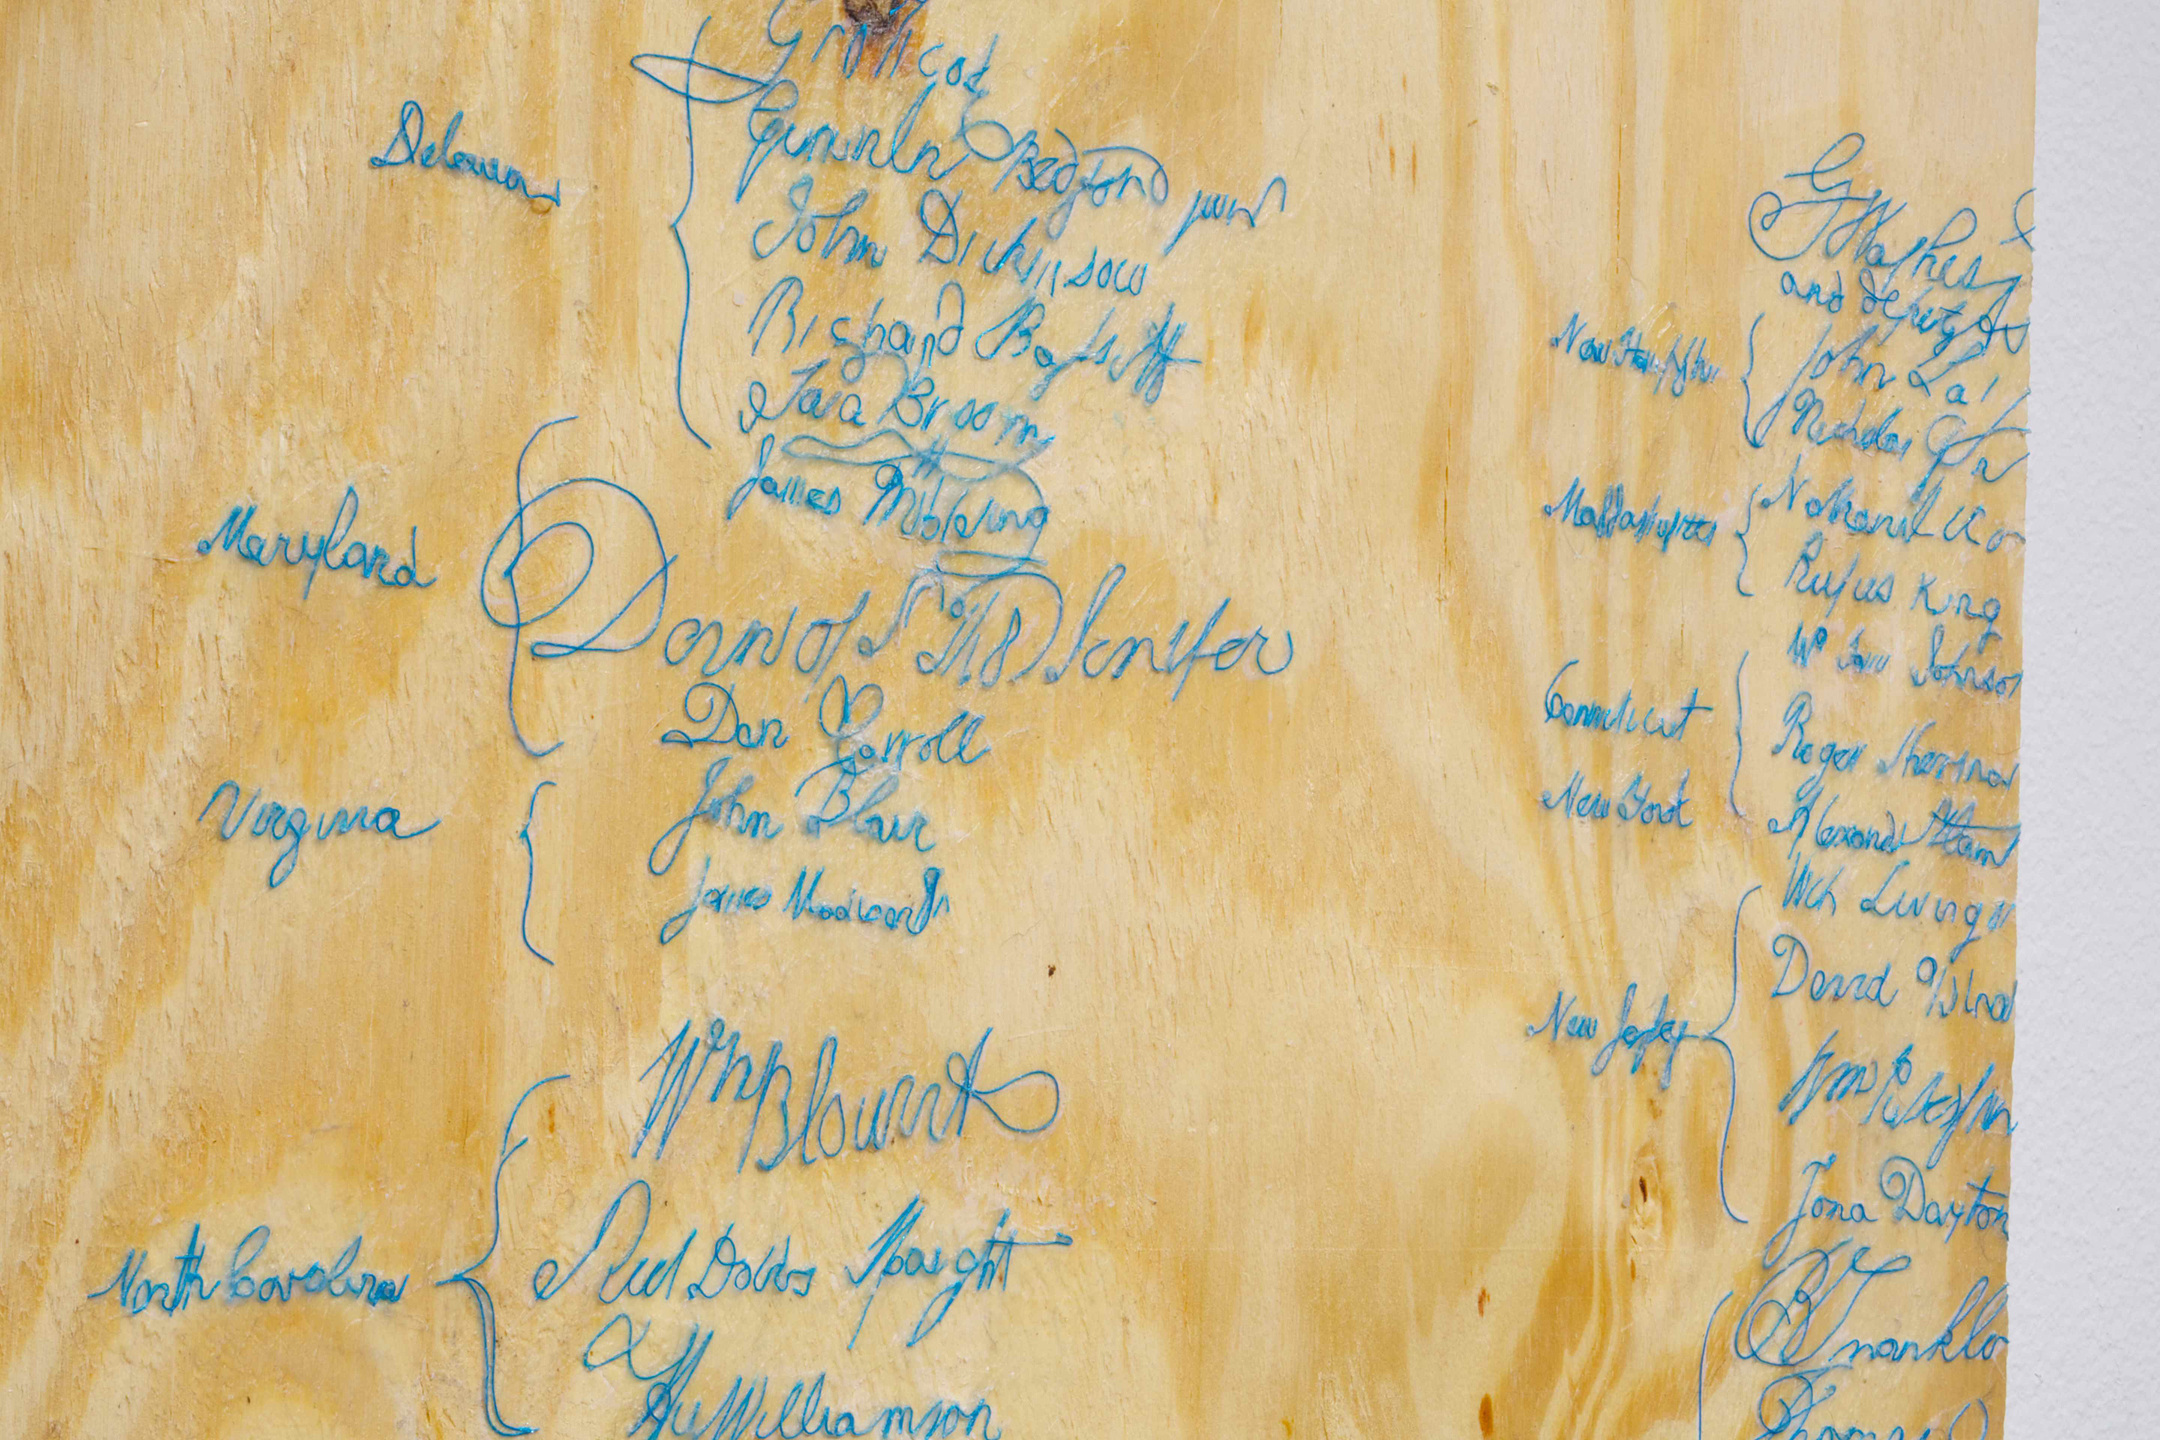 Delaware
Gunnila Bedford jun
John Dickinsow
Richard Bassett
Jaca Broom
James McHenry
Maryland
Dan of St Tho Jenifer
Dan Carroll
Virginia
John Blair
James Madison Jr
Wm Blount
North Carolina
Richd Dobbs Spaight
Hu Williamson
G Washi
and deputy
New Hampshire
John La
Nicholas
Massachusetts
Nathaniel Go
Rufus King
Connecticut
Wm Sam Johnson
Roger Sherman
New York
Alexander Ham
Wil Livings
David
New Jersey
Wm
Jona Dayton
B Franklin
Thomas